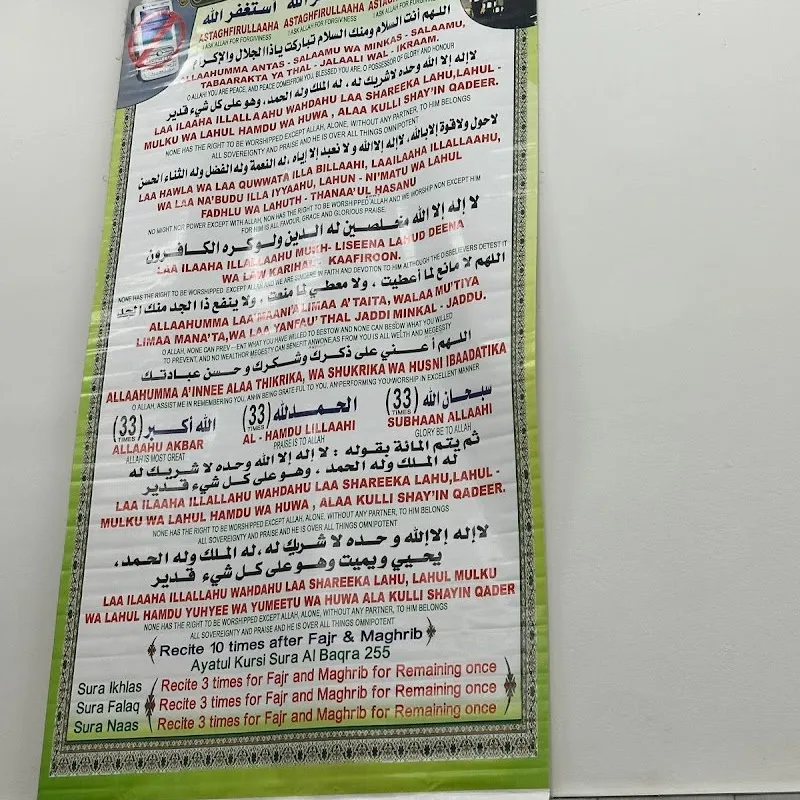 أستغفر الله
ASTAGHFIRULLAAHA ASTAGHFIRULLAAHA
I ASK ALLAH FOR FORGIVENESS I ASK ALLAH FOR FORGIVENESS I ASK ALLAH FOR FORGIVENESS
اللهم أنت السلام ومنك السلام تباركت ياذا الجلال والإكرام
ALLAAHUMMA ANTAS - SALAAMU WA MINKAS - SALAAMU,
TABAARAKTA YA THAL - JALAALI WAL - IKRAAM.
O ALLAH! YOU ARE PEACE, AND PEACE COMES FROM YOU, BLESSED YOU ARE, O POSSESSOR OF GLORY AND HONOUR
لاإله إلا الله وحده لاشريك له، له الملك وله الحمد، وهو على كل شيء قدير
LAA ILAAHA ILLALLAAHU WAHDAHU LAA SHAREEKA LAHU, LAHUL -
MULKU WA LAHUL HAMDU WA HUWA , ALAA KULLI SHAY'IN QADEER.
NONE HAS THE RIGHT TO BE WORSHIPPED EXCEPT ALLAH, ALONE, WITHOUT ANY PARTNER, TO HIM BELONGS
ALL SOVEREIGNTY AND PRAISE AND HE IS OVER ALL THINGS OMNIPOTENT
لاحول ولاقوة إلابالله، لاإله إلاالله ولا نعبد إلا إياه، له النعمة وله الفضل وله الثناء الحسن
LAA HAWLA WA LAA QUWWATA ILLA BILLAAHI, LAAILAAHA ILLALLAAHU,
WA LAA NA'BUDU ILLA IYYAAHU, LAHUN - NI'MATU WA LAHUL
FADHLU WA LAHUTH - THANAA'UL HASANU
NO MIGHT NOR POWER EXCEPT WITH ALLAH, NON HAS THE RIGHT TO BE WORSHIPPED AND WE WORSHIP NON EXCEPT HIM
FOR HIM IS ALL FAVOUR, GRACE AND GLORIOUS PRAISE.
لا إله إلا الله مخلصين له الدين ولوكره الكافرون
LAA ILAAHA ILLALLAAHU MUKH- LISEENA LAHUD DEENA
WA LAW KARIHAL - KAAFIROON.
NONE HAS THE RIGHT TO BE WORSHIPPED EXCEPT ALLAH AND WE ARE SINCERE IN FAITH AND DEVOTION TO HIM ALTHOUGH THE DISBELIEVERS DETEST IT
اللهم لا مانع لما أعطيت ، ولا معطي لما منعت ، ولا ينفع ذا الجد منك الجد
ALLAAHUMMA LAA MAANI'A LIMAA A'TAITA, WALAA MU'TIYA
LIMAA MANA'TA,WA LAA YANFAU' THAL JADDI MINKAL - JADDU.
O ALLAH, NONE CAN PREV-- ENT WHAT YOU HAVE WILLED TO BESTOW AND NONE CAN BESTOW WHAT YOU WILLED
TO PREVENT, AND NO WEALTHOR MEGESTY CAN BENEFIT ANWONE,AS FROM YOU IS ALL WELTH AND MEGESTY
اللهم أعني على ذكرك وشكرك و حسن عبادتك
ALLAAHUMMA A'INNEE ALAA THIKRIKA, WA SHUKRIKA WA HUSNI IBAADATIKA
O ALLAH, ASSIST ME IN REMEMBERING YOU, AN IN BEING GRATEFUL TO YOU, AN PERFORMING YOU WORSHIP IN EXCELLENT MANNER
سبحان الله (33) الحمدلله (33) الله أكبر (33)
TIMES TIMES TIMES
SUBHAAN ALLAAHI AL - HAMDU LILLAAHI ALLAAHU AKBAR
GLORY BE TO ALLAH PRAISE IS TO ALLAH ALLAH IS MOST GREAT
ثم يتم المائة بقوله : لا إله إلا الله وحده لا شريك له
له الملك وله الحمد ، وهو على كل شيء قدير
LAA ILAAHA ILLALLAHU WAHDAHU LAA SHAREEKA LAHU,LAHUL -
MULKU WA LAHUL HAMDU WA HUWA , ALAA KULLI SHAY'IN QADEER.
NONE HAS THE RIGHT TO BE WORSHIPPED EXCEPT ALLAH, ALONE, WITHOUT ANY PARTNER, TO HIM BELONGS
ALL SOVEREIGNTY AND PRAISE AND HE IS OVER ALL THINGS OMNIPOTENT
لاإله إلاالله و حده لا شريك له ،له الملك وله الحمد،
يحيي ويميت وهو على كل شيء قدير
LAA ILAAHA ILLALLAHU WAHDAHU LAA SHAREEKA LAHU, LAHUL MULKU
WA LAHUL HAMDU YUHYEE WA YUMEETU WA HUWA ALA KULLI SHAYIN QADER
NONE HAS THE RIGHT TO BE WORSHIPPED EXCEPT ALLAH, ALONE, WITHOUT ANY PARTNER, TO HIM BELONGS
ALL SOVEREIGNTY AND PRAISE AND HE IS OVER ALL THINGS OMNIPOTENT
Recite 10 times after Fajr & Maghrib
Ayatul Kursi Sura Al Baqra 255
Sura Ikhlas Recite 3 times for Fajr and Maghrib for Remaining once
Sura Falaq Recite 3 times for Fajr and Maghrib for Remaining once
Sura Naas Recite 3 times for Fajr and Maghrib for Remaining once